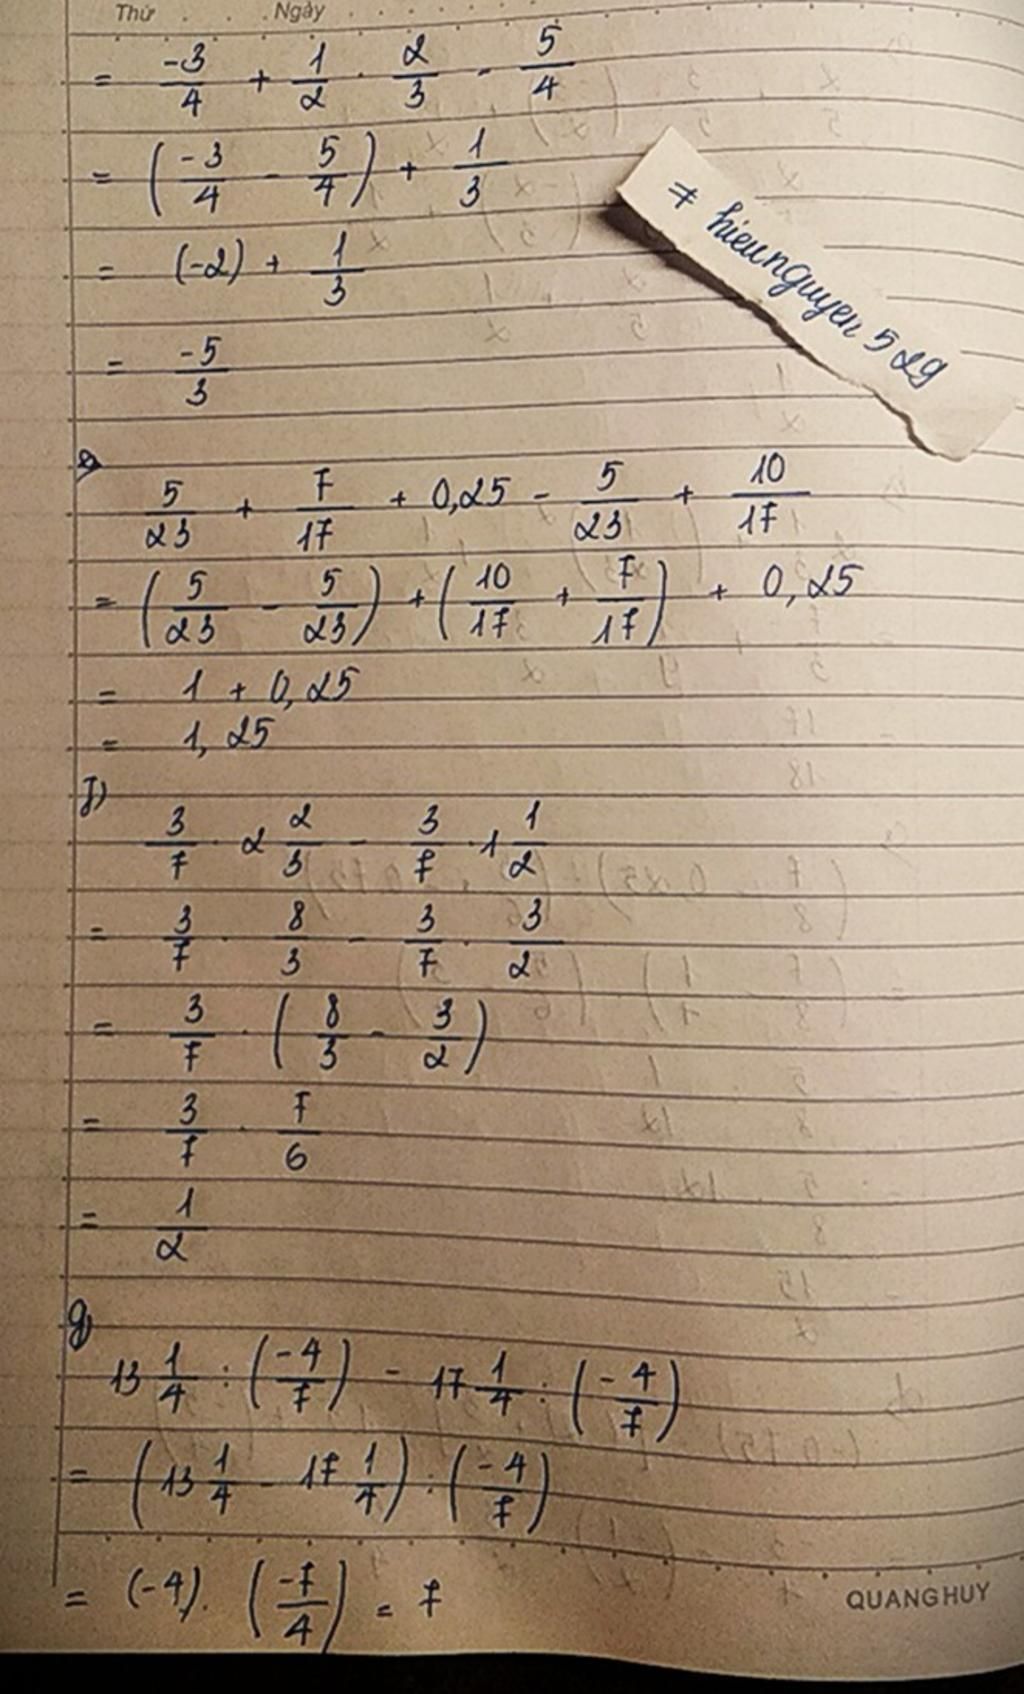 Thứ Ngày
= -3/4 + 1/2 . 2/3 - 5/4
= (-3/4 - 5/4) + 1/3
= (-2) + 1/3
= -5/3
e)
5/23 + 7/17 + 0,25 - 5/23 + 10/17
= (5/23 - 5/23) + (10/17 + 7/17) + 0,25
= 1 + 0,25
= 1,25
f)
3/7 . 2 2/3 - 3/7 . 1 1/2
= 3/7 . 8/3 - 3/7 . 3/2
= 3/7 . (8/3 - 3/2)
= 3/7 . 7/6
= 1/2
g)
13 1/4 : (-4/7) - 17 1/4 : (-4/7)
= (13 1/4 - 17 1/4) : (-4/7)
= (-4) . (-7/4) = 7
hieunguyen 529
QUANG HUY